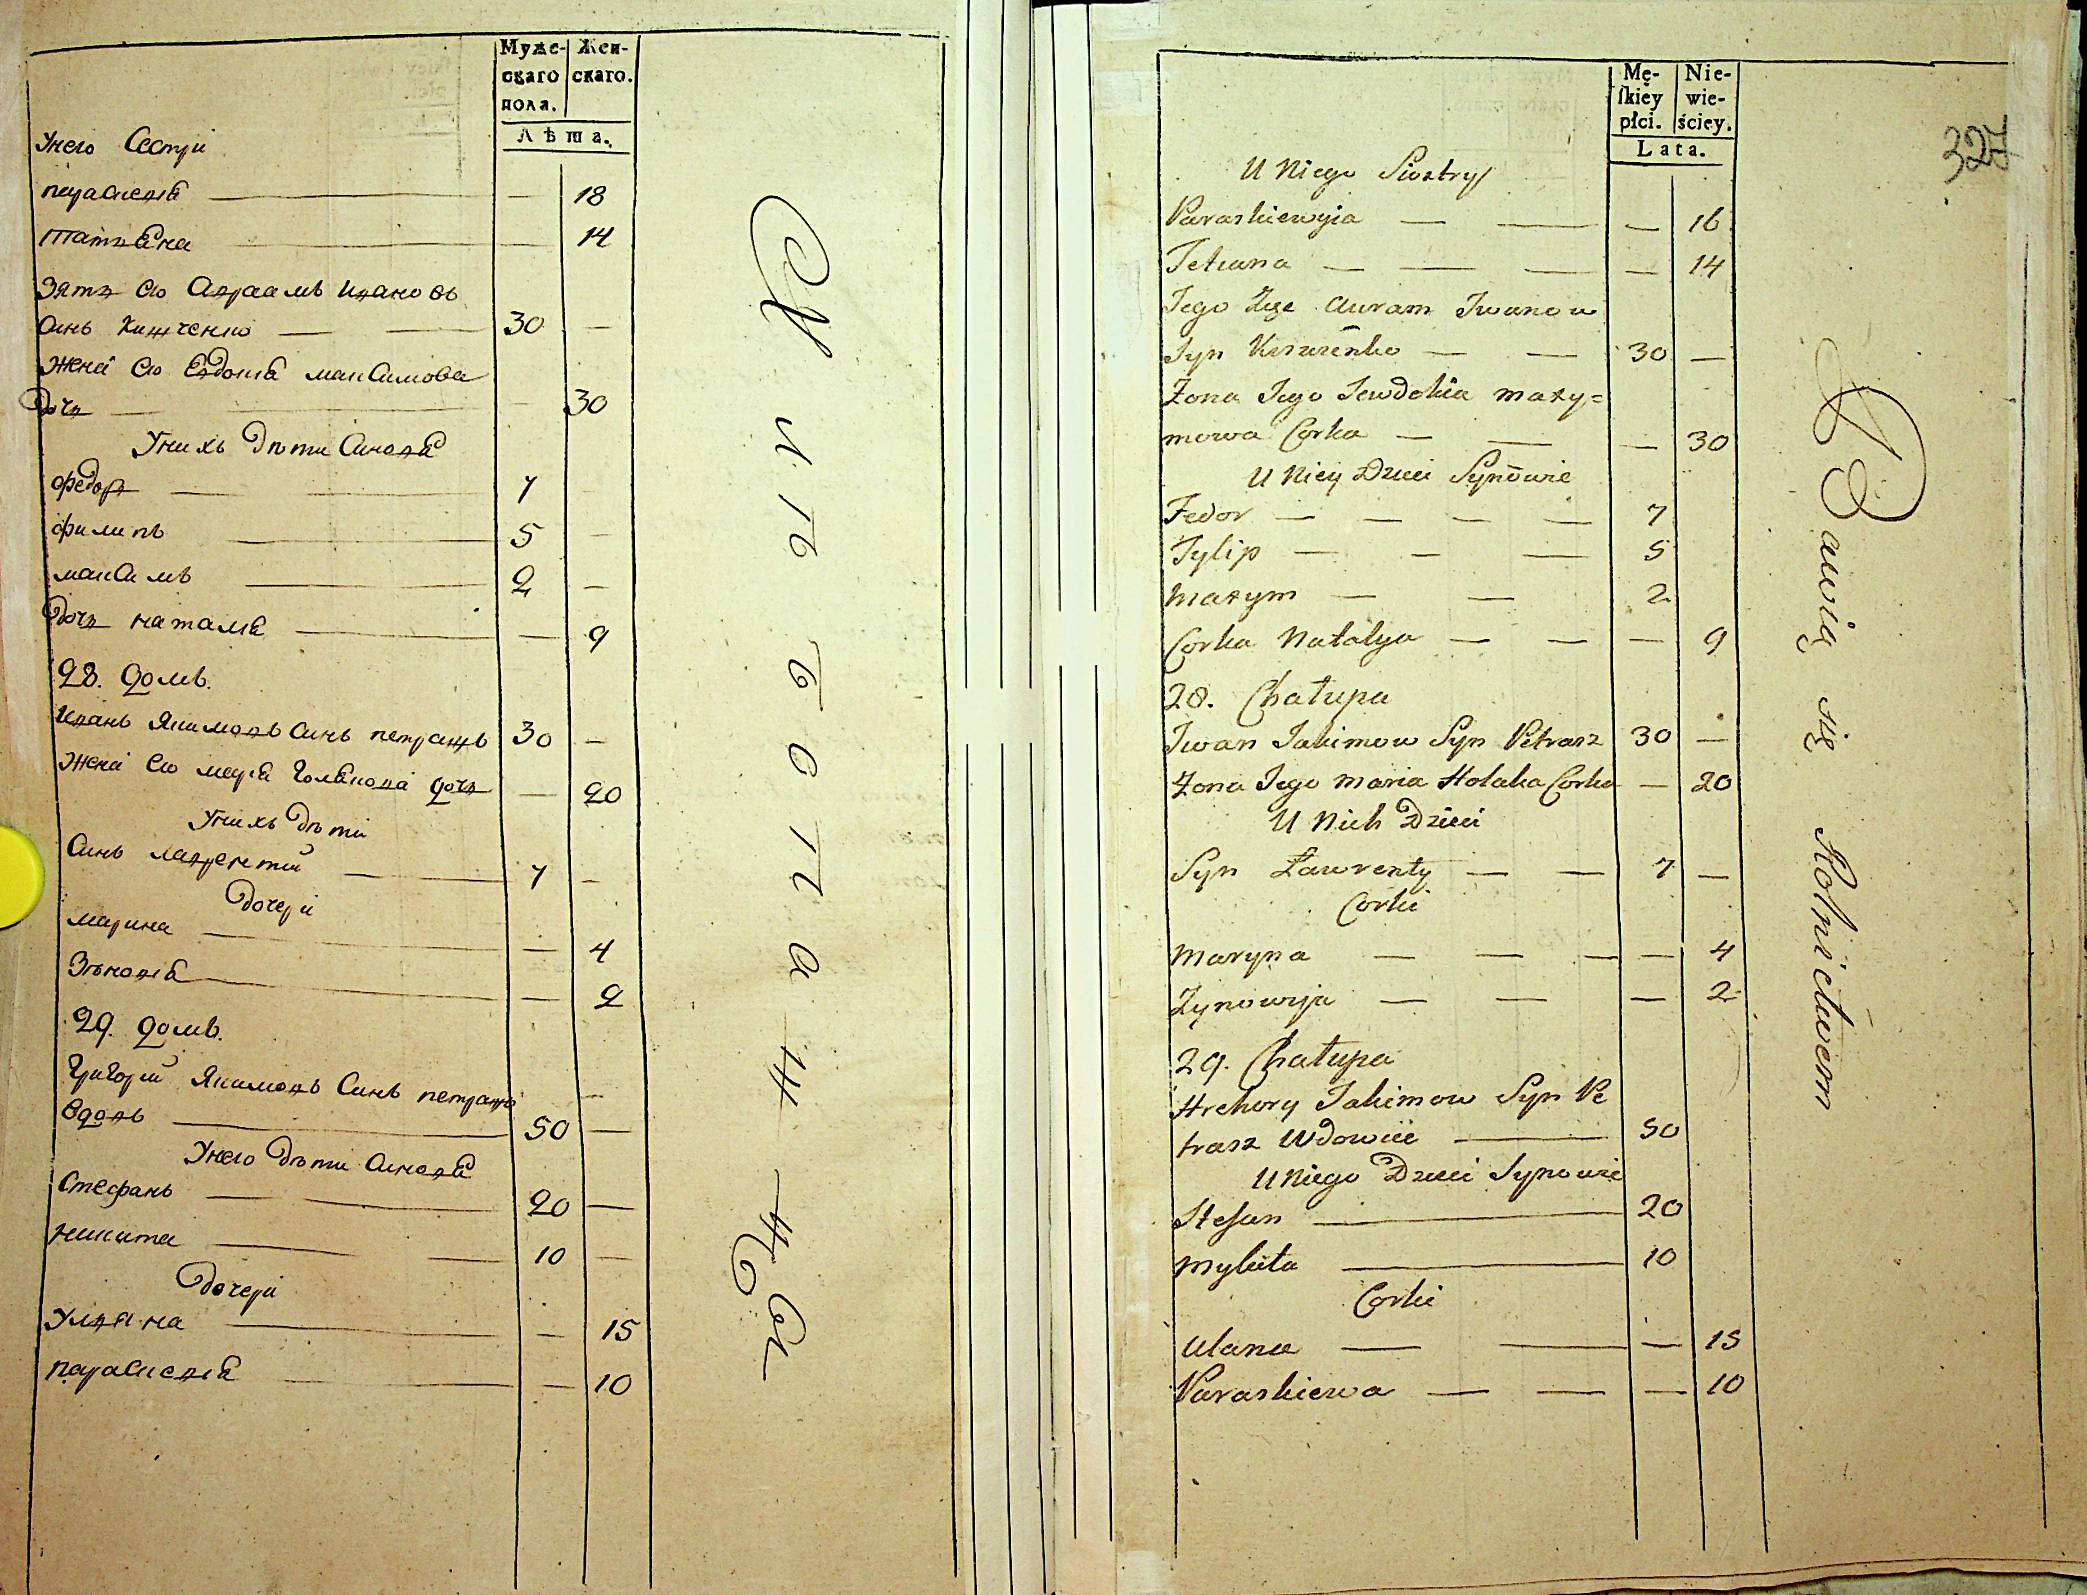 Муже-
скаго
пола.
Жен-
скаго.
Лѣта.
Унего Сестри
параскевія — — 18
татьяна — — 14
Зять его Авраамъ Ивановъ
Синь Кищченко — — 30 —
Жена его Евдокія максимова
дочь — — 30
Унихъ дѣти Синовя
Федоръ — 7
филипъ — 5 —
максимъ — 2 —
дочь наталія — — 9
28. домъ.
Иванъ Якимовъ Синъ петрашъ 30 —
Жена его марія Голякова дочь — 20
Унихъ дѣти
Синъ лаврентий — 7 —
дочери
марина — — 4
Зѣновія — — 2
29. домъ.
Григорий Якимовъ Синъ петрашъ
вдовъ — 50 —
Унего дѣти Синовя
Стефанъ — 20 —
никита — 10 —
дочери
Уляна — — 15
параскевія — — 10
Mę-
ſkiéy
płci.
Nie-
wie-
ściey.
Lata.
327
U Niego Siostry
Paraskiewyia — — — 16
Tetiana — — — — 14
Jego Zięc Auram Iwanow
Syn Kiszczenko — — 30 —
Żona Jego Jewdokia maxy=
mowa Corka — — — 30
U Niey Dzieci Synowie
Fedor — — — — 7
Fylip — — — 5
Maxym — — 2
Corka Natalya — — — 9
28. Chałupa
Iwan Jakimow Syn Petrasz 30 —
Żona Jego Maria Holaka Corka — 20
U Nich Dzieci
Syn Ławrenty — — 7 —
Corki
Maryna — — — — 4
Zynowija — — — 2
29. Chałupa
Hrehory Jakimow Syn Pe
trasz Wdowiec — 50
U Niego Dzieci Synowie
Stefan — 20
Mykita — 10
Corki
Ulana — — — 15
Paraskiewa — — — 10
Bawią się Rolnictwem